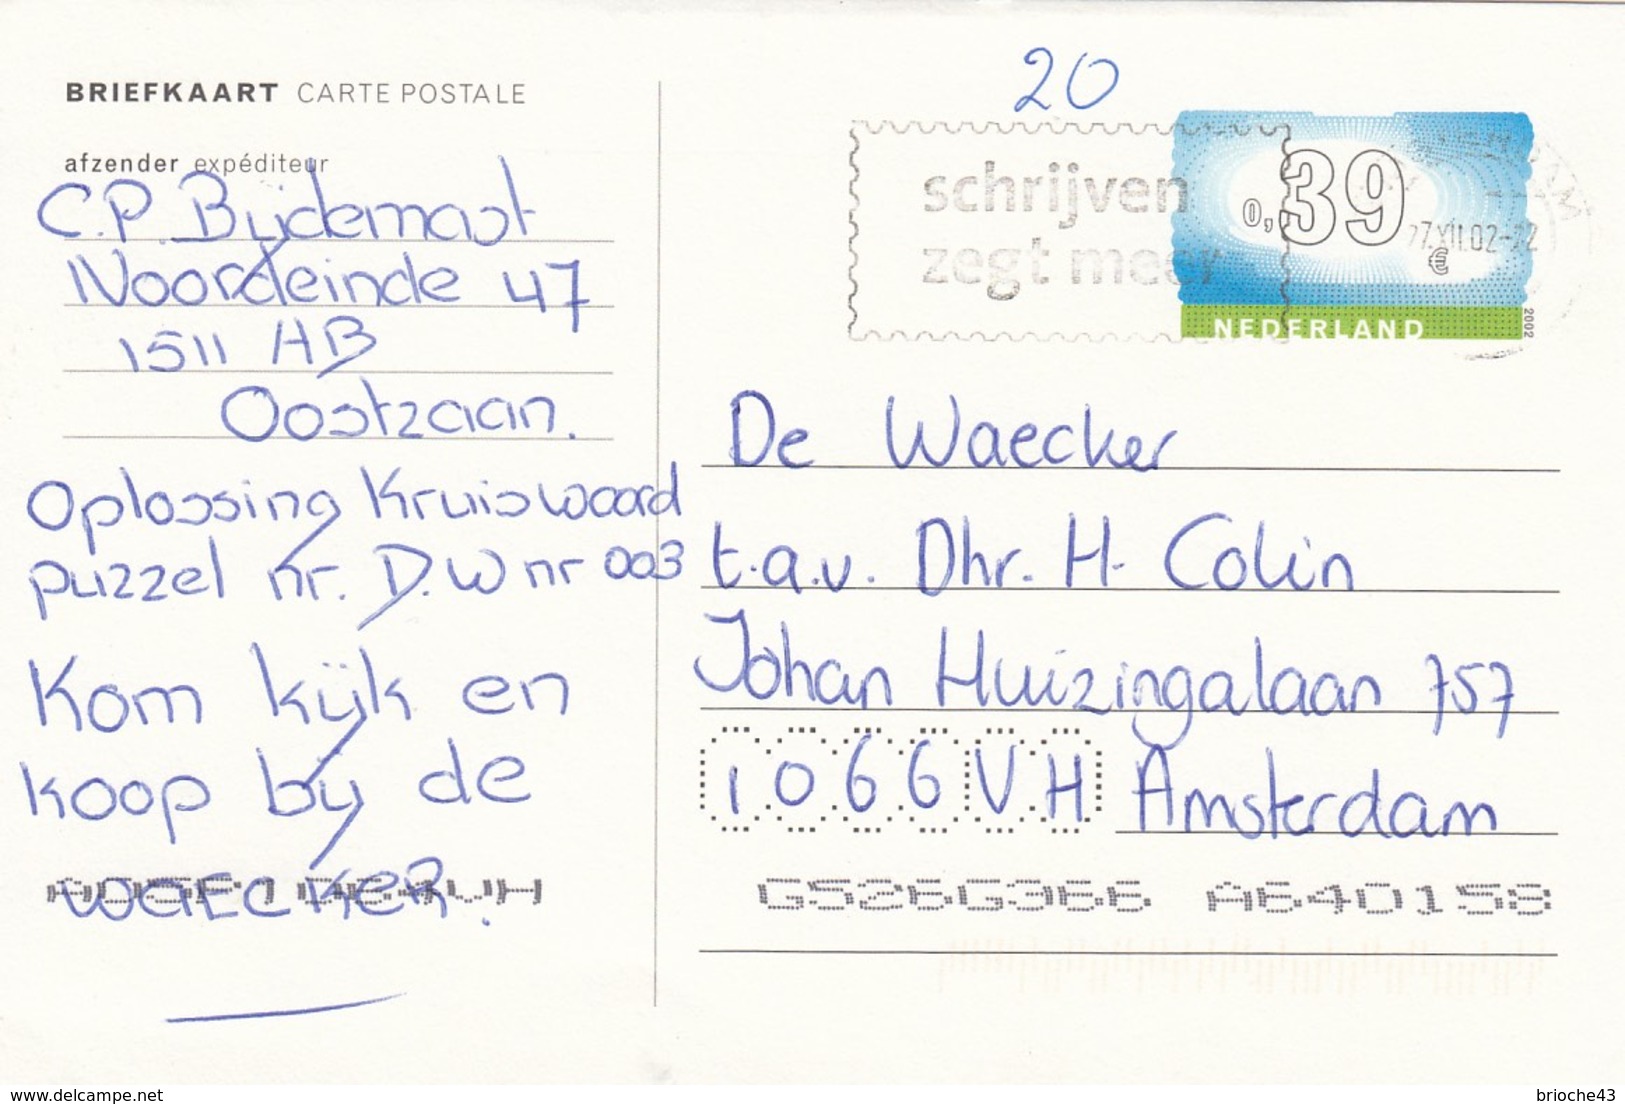 BRIEFKAART CARTE POSTALE
afzender expéditeur
C.P. Bijdemast
Noordeinde 47
1511 AB
Oostzaan.
Oplossing Kruiswoord
puzzel nr. D.W nr 003
Kom kijk en
koop bij de
WAECKER.
20
schrijven
zegt meer
0,39
€
7.XII.02-22
NEDERLAND
2002
De Waecker
t.a.v. Dhr. H. Colin
Johan Huizingalaan 757
1066VH Amsterdam
G526G366 A640158
delcampe.net
brioche43